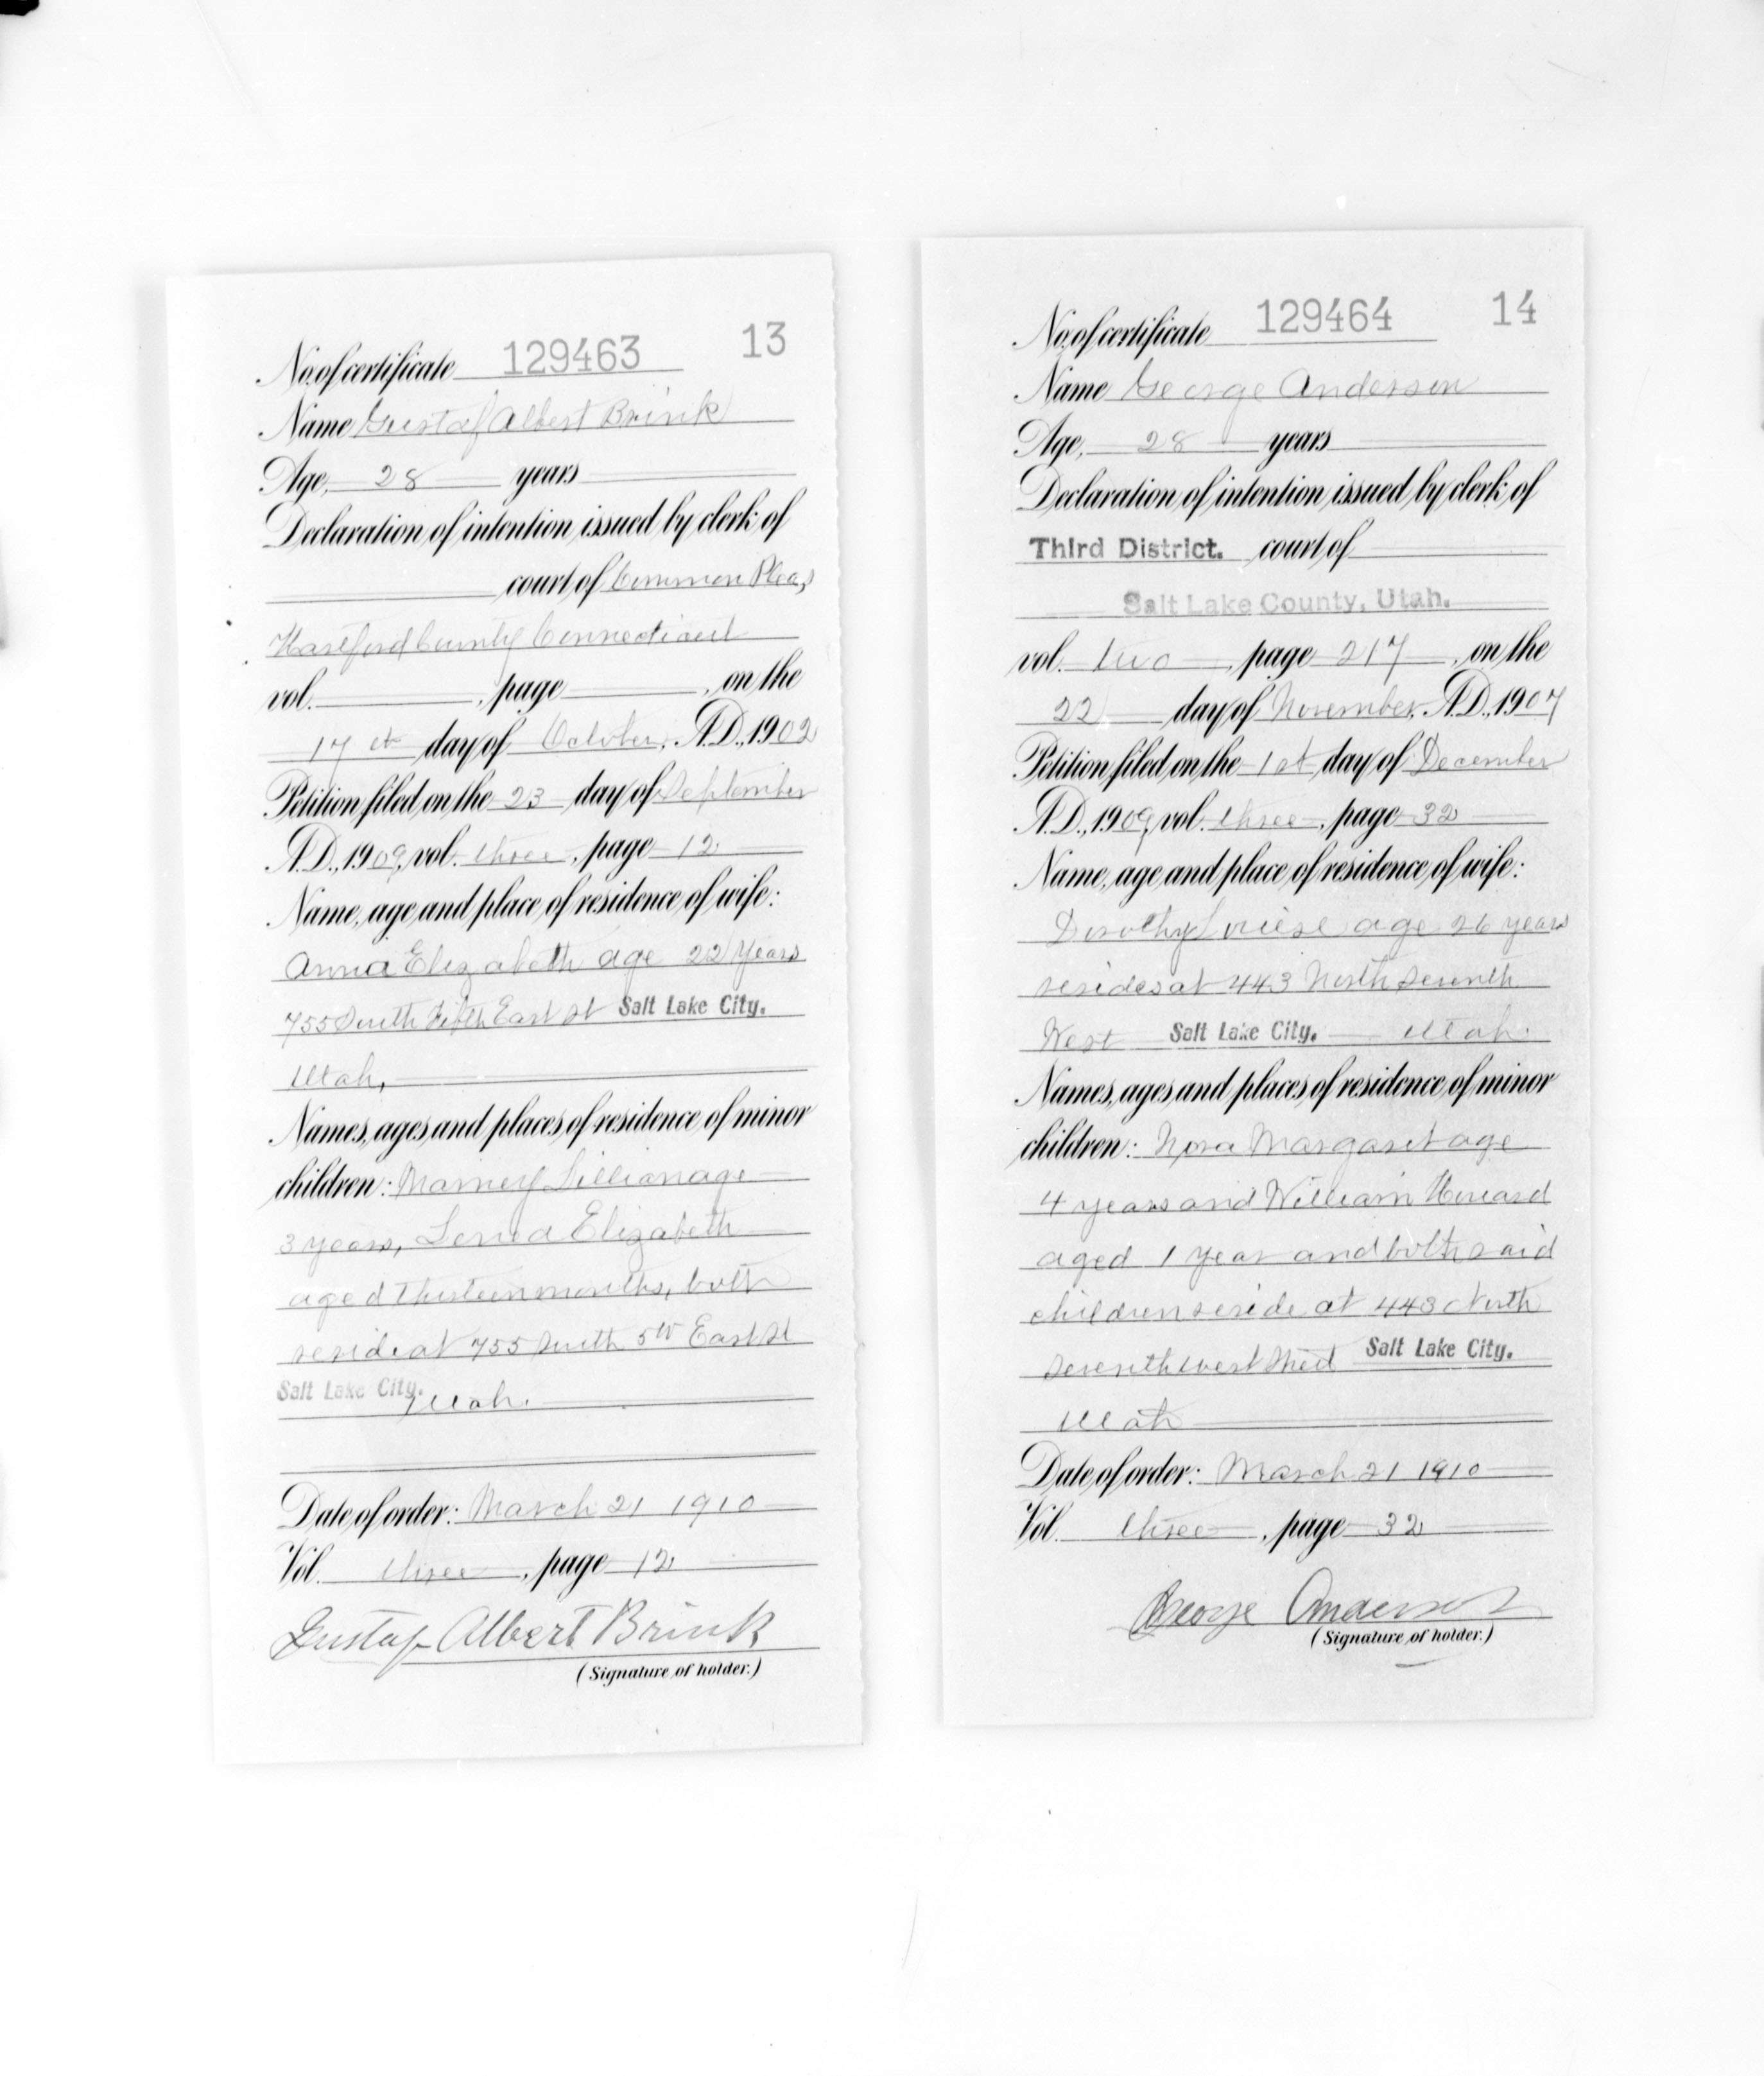 No. of certificate 129463 13
Name Gustaf Albert Brink
Age, 28 years
Declaration of intention issued by clerk of
court of Common Pleas
Hartford County Connecticut
vol. , page , on the
17th day of October, A.D., 1902
Petition filed on the 23 day of September
A.D., 1909, vol. three, page 12
Name, age and place of residence of wife:
Anna Elizabeth age 22 years
755 South Fifth East St Salt Lake City.
Utah,
Names, ages and places of residence of minor
children: Lillian age
3 years, Elizabeth
aged thirteen months, both
reside at 755 South 5th East St
Salt Lake City. Utah.
Date of order: March 21 1910
Vol. three, page 12
Gustaf Albert Brink
(Signature of holder.)
No. of certificate 129464 14
Name George Anderson
Age, 28 years
Declaration of intention issued by clerk of
Third District. court of
Salt Lake County, Utah.
vol. two, page 217, on the
22 day of November, A.D., 1907
Petition filed on the 1st day of December
A.D., 1909, vol. three, page 32
Name, age and place of residence of wife:
Dorothy age 26 years
resides at 443 North Seventh
West Salt Lake City. Utah.
Names, ages and places of residence of minor
children: Nora Margaret age
4 years and William Howard
aged 1 year and both said
children reside at 443 North
Seventh West Salt Lake City.
Utah
Date of order: March 21 1910
Vol. three, page 32
George Anderson
(Signature of holder.)